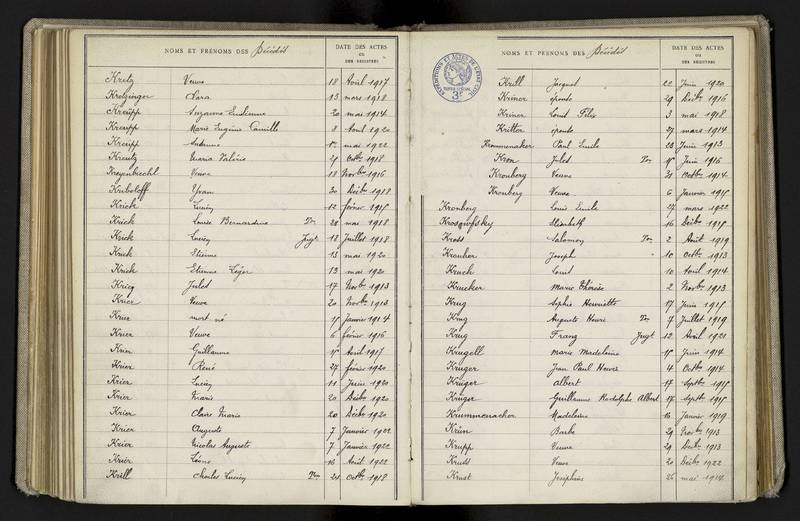 NOMS ET PRÉNOMS DES Décédés
DATE DES ACTES
OU
DES REGISTRES
Kretz Veuve 18 Avril 1917
Kretzinger Sara 13 mars 1918
Kreupp Suzanne Eudienne 20 mai 1914
Kreupp Marie Eugénie Camille 8 Avril 1920
Kreupp mai 1922
Kreutz Maria Valérie 29 Octbre 1918
Kreyenbiechl Veuve 18 Novbre 1916
Kriboleff Yvan 30 Décbre 1918
Krick Lucien 12 février 1915
Krick Louise Bernardine Ton 28 mai 1918
Krick Lucien Jugt 18 Juillet 1918
Krick Etienne 13 mai 1920
Krick Etienne Léger 13 mai 1920
Krieg Jules 17 Novbre 1913
Krier Veuve 20 Novbre 1913
Krier mort né 15 Janvier 1914
Krier Veuve 6 février 1916
Krier Guillaume 15 Avril 1917
Krier René 27 février 1920
Krier Lucien 11 Juin 1920
Krier Marie 20 Décbre 1920
Krier Claire Marie 20 Décbre 1920
Krier Auguste 7 Janvier 1922
Krier Nicolas Auguste 7 Janvier 1922
Krier Léonie 16 Avril 1922
Krill Charles Lucien Ton 20 Octbre 1918
NOMS ET PRÉNOMS DES Décédés
DATE DES ACTES
OU
DES REGISTRES
Krill Jacques 22 Juin 1920
Krimer épouse 29 Décbre 1916
Kriner Louis Félix 3 mai 1918
Kritter épouse 27 mars 1914
Krommenaker Paul Emile 23 Juin 1913
Kron Jules Ton 15 Juin 1916
Kronberg Veuve 31 Octbre 1914
Kronberg Veuve 6 Janvier 1915
Kronberg Louis Emile 27 mars 1922
Krosqufsky Elisabeth 16 Décbre 1915
Kross Salomon Ton 2 Août 1919
Kroutter Joseph 10 Octbre 1913
Kruch Louis 10 Avril 1914
Krucker Marie Thérèse 2 Novbre 1913
Krug Sophie Henriette 17 Juin 1915
Krug Auguste Henri Ton 7 Juillet 1919
Krug Franz Jugt 12 Avril 1921
Krugell Marie Madeleine 15 Juin 1914
Kruger Jean Paul Henri 4 Octbre 1914
Krüger Albert 17 Septbre 1915
Krüger Guillaume Rodolphe Albert 17 Septbre 1915
Krummenacher Madeleine 16 Janvier 1919
Barbe 29 Novbre
Krupp Veuve 29 Décbre 1913
Veuve 20 Décbre 1922
Krust Joséphine 26 mai 1914